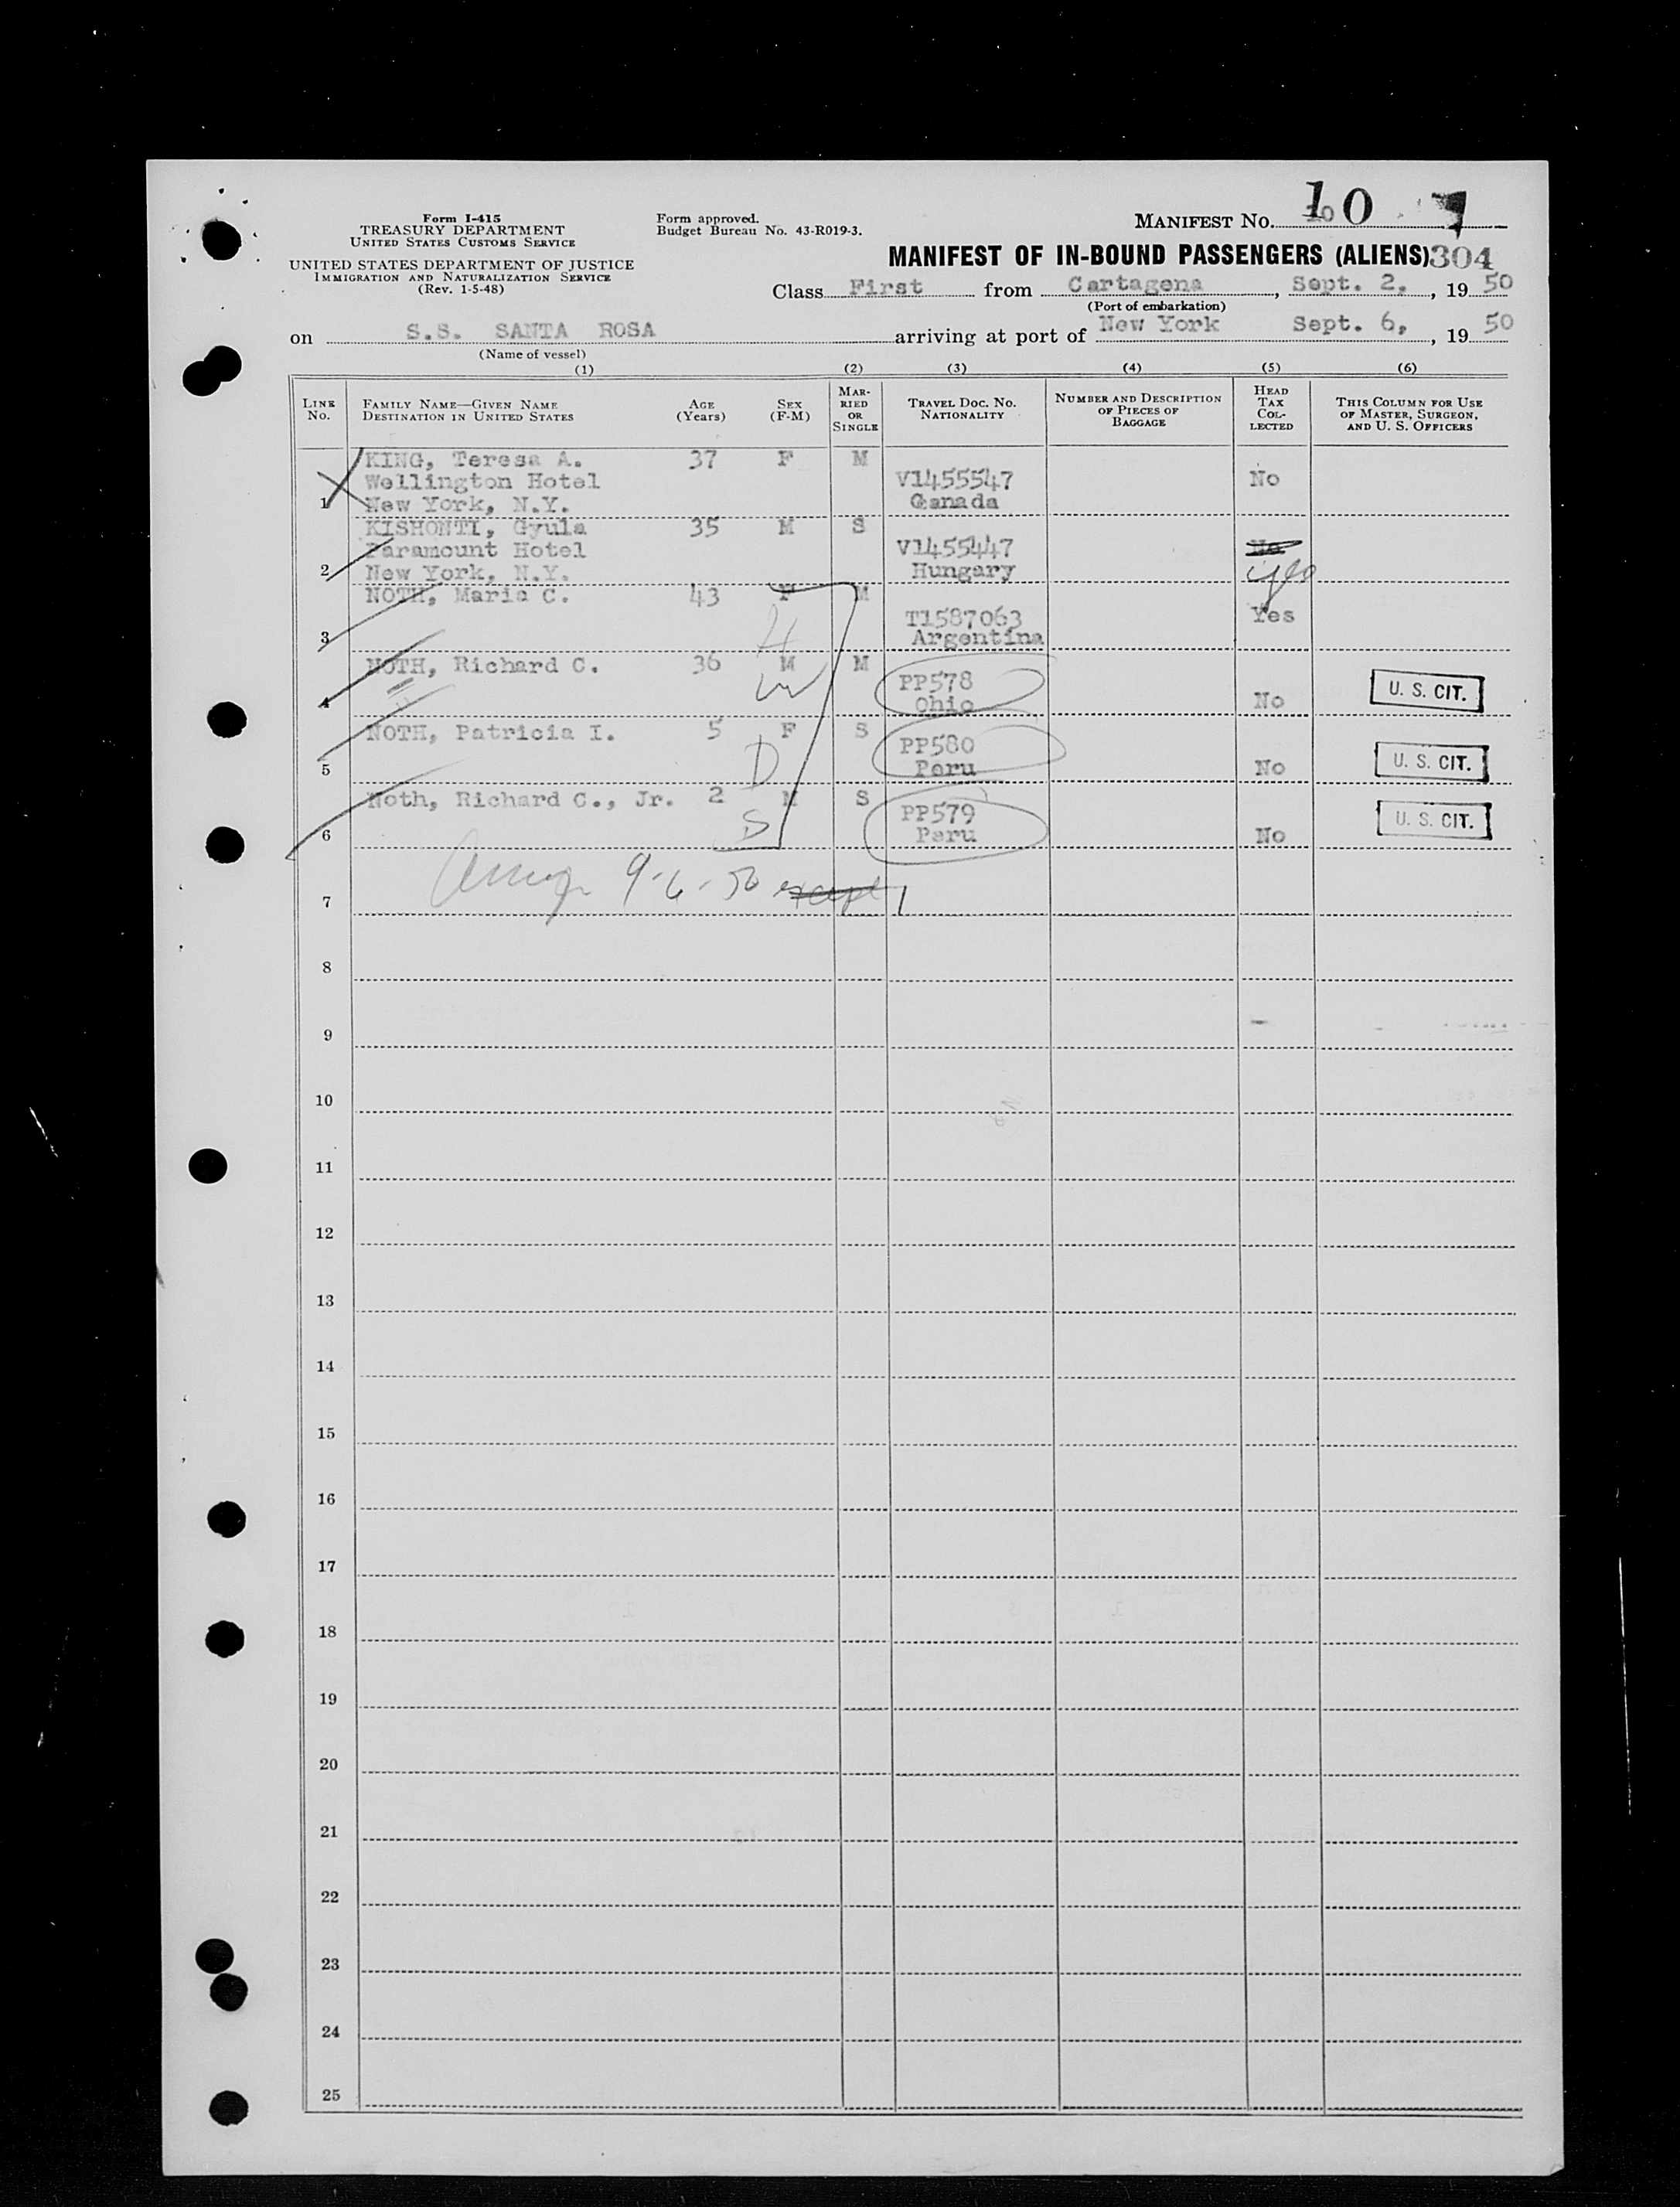 Form I-415
TREASURY DEPARTMENT
UNITED STATES CUSTOMS SERVICE
UNITED STATES DEPARTMENT OF JUSTICE
IMMIGRATION AND NATURALIZATION SERVICE
(Rev. 1-5-48)
Form approved.
Budget Bureau No. 43-R019-3.
MANIFEST No. 10
MANIFEST OF IN-BOUND PASSENGERS (ALIENS) 304
Class First from Cartagena, Sept. 2, , 19 50
(Port of embarkation)
on S.S. SANTA ROSA arriving at port of New York Sept. 6, , 19 50
(Name of vessel)
(1) (2) (3) (4) (5) (6)
LINE No. FAMILY NAME—GIVEN NAME DESTINATION IN UNITED STATES AGE (Years) SEX (F-M) MARRIED OR SINGLE TRAVEL DOC. No. NATIONALITY NUMBER AND DESCRIPTION OF PIECES OF BAGGAGE HEAD TAX COLLECTED THIS COLUMN FOR USE OF MASTER, SURGEON, AND U. S. OFFICERS
KING, Teresa A. 37 F M
Wellington Hotel V1455547 No
1 New York, N.Y. Canada
KISHONTI, Gyula 35 M S
Paramount Hotel V1455447 No
2 New York, N.Y. Hungary yes
NOTH, Maria C. 43 F M
T1587063 Yes
3 Argentina
NOTH, Richard C. 36 M M
PP578 U. S. CIT.
4 Ohio No
NOTH, Patricia I. 5 F S
PP580 U. S. CIT.
D
5 Peru No
Noth, Richard C., Jr. 2 M S
PP579 U. S. CIT.
S
6 Peru No
9-6-50 except 1
7
8
9
10
11
12
13
14
15
16
17
18
19
20
21
22
23
24
25